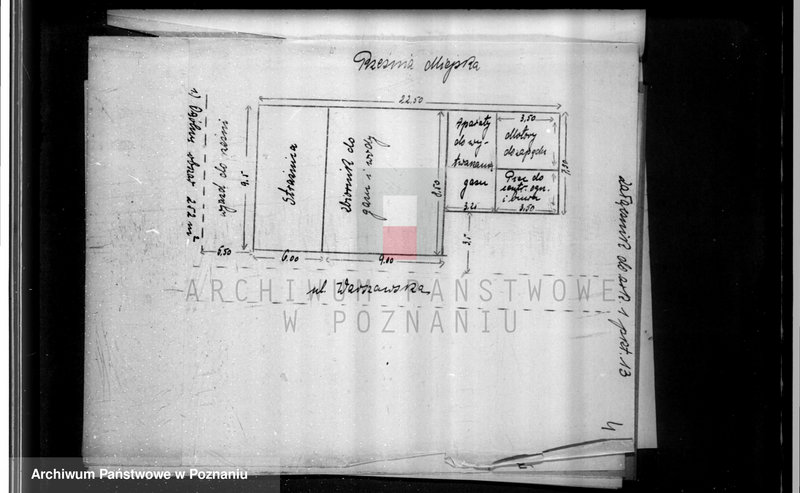 Rzeźnia Miejska
22.50
Załącznik do ark. 1 pkt. 13
4
1) Ogólny obszar 212 m²
wjazd do rzeźni
6,50
9.5
Strażnica
6.00
Zbiornik do
gazu i wody
9.00
8.50
Aparaty
do wy-
twarzania
gazu
3.20
3,50
Motory
do zapędu
Piec do
centr. ogrz.
3.50
7,50
3,5
ul. Warszawska
ARCHIWUM PAŃSTWOWE
W POZNANIU
Archiwum Państwowe w Poznaniu